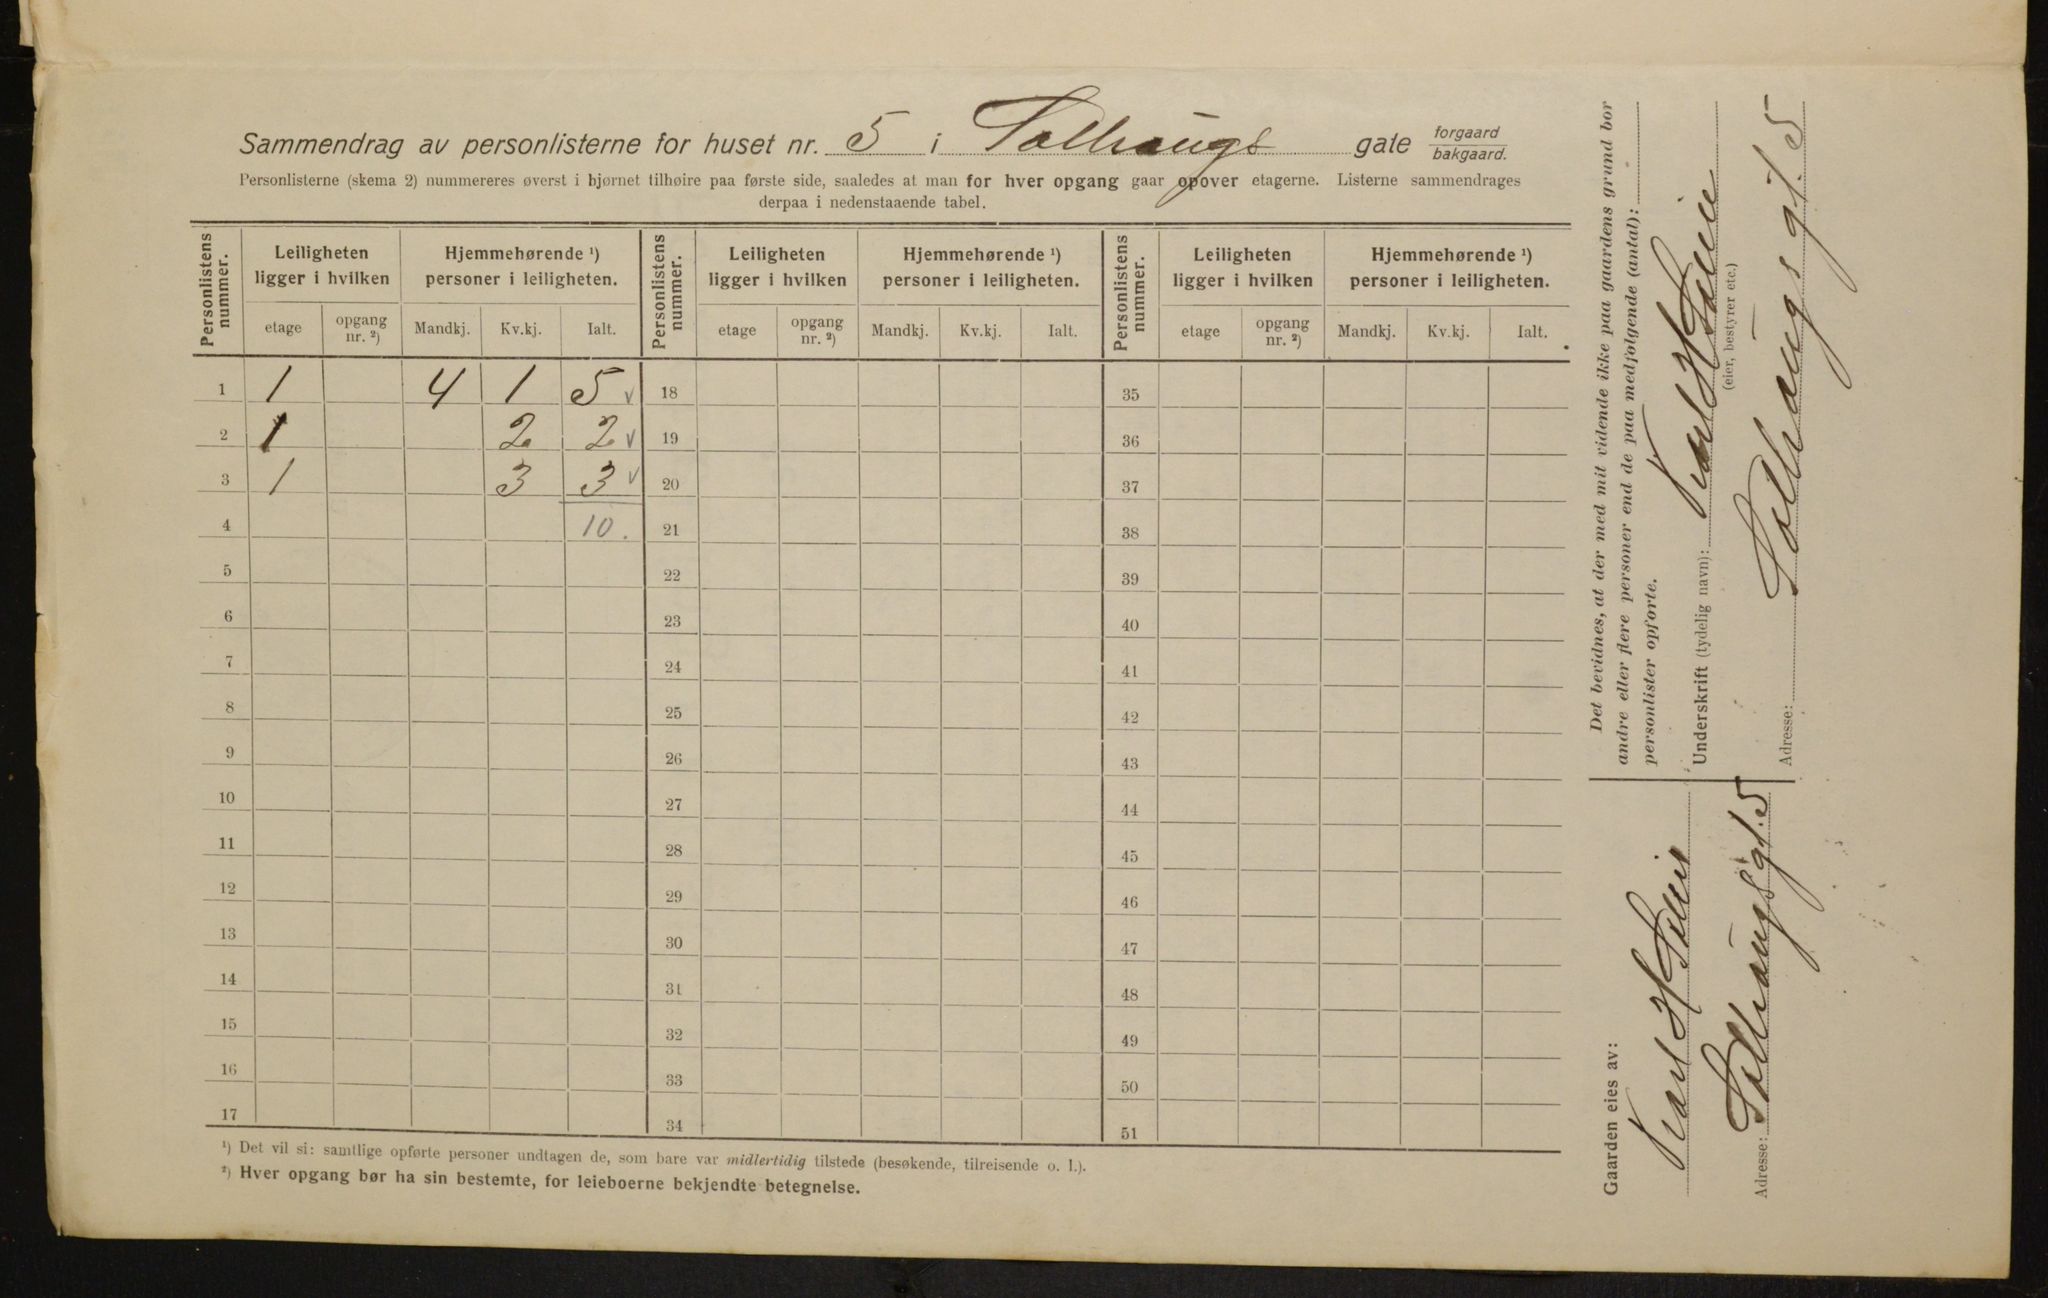 Sammendrag av personlisterne for huset nr. 5 i Solhaugs gate forgaard bakgaard.
Personlisterne (skema 2) nummereres øverst i hjørnet tilhøire paa første side, saaledes at man for hver opgang gaar opover etagerne. Listerne sammendrages
derpaa i nedenstaaende tabel.
Personlistens nummer. Leiligheten ligger i hvilken Hjemmehørende ¹) personer i leiligheten. Personlistens nummer. Leiligheten ligger i hvilken Hjemmehørende ¹) personer i leiligheten. Personlistens nummer. Leiligheten ligger i hvilken Hjemmehørende ¹) personer i leiligheten.
etage opgang nr. ²) Mandkj. Kv.kj. Ialt. etage opgang nr. ²) Mandkj. Kv.kj. Ialt. etage opgang nr. ²) Mandkj. Kv.kj. Ialt.
1 1 4 1 5 v 18 35
2 1 2 2 v 19 36
3 1 3 3 v 20 37
4 10. 21 38
5 22 39
6 23 40
7 24 41
8 25 42
9 26 43
10 27 44
11 28 45
12 29 46
13 30 47
14 31 48
15 32 49
16 33 50
17 34 51
¹) Det vil si: samtlige opførte personer undtagen de, som bare var midlertidig tilstede (besøkende, tilreisende o. l.).
²) Hver opgang bør ha sin bestemte, for leieboerne bekjendte betegnelse.
Det bevidnes, at der med mit vidende ikke paa gaardens grund bor
andre eller flere personer end de paa medfølgende (antal):
personlister opførte.
Underskrift (tydelig navn): Karl H
(eier, bestyrer etc.)
Adresse: Solhaugs gt. 5
Gaarden eies av:
Karl H
Adresse: Solhaugsgt. 5